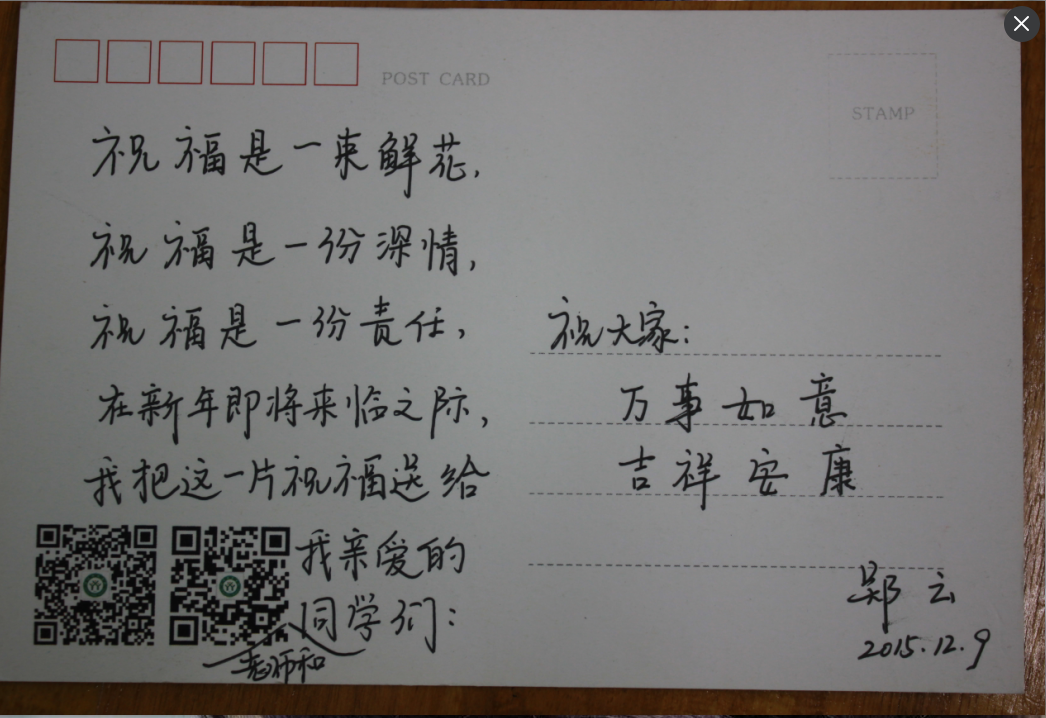 POST CARD
STAMP
祝福是一束鲜花,
祝福是一份深情,
祝福是一份责任,
在新年即将来临之际,
我把这一片祝福送给
我亲爱的
老师和
同学们:
祝大家:
万事如意
吉祥安康
郑云
2015.12.9